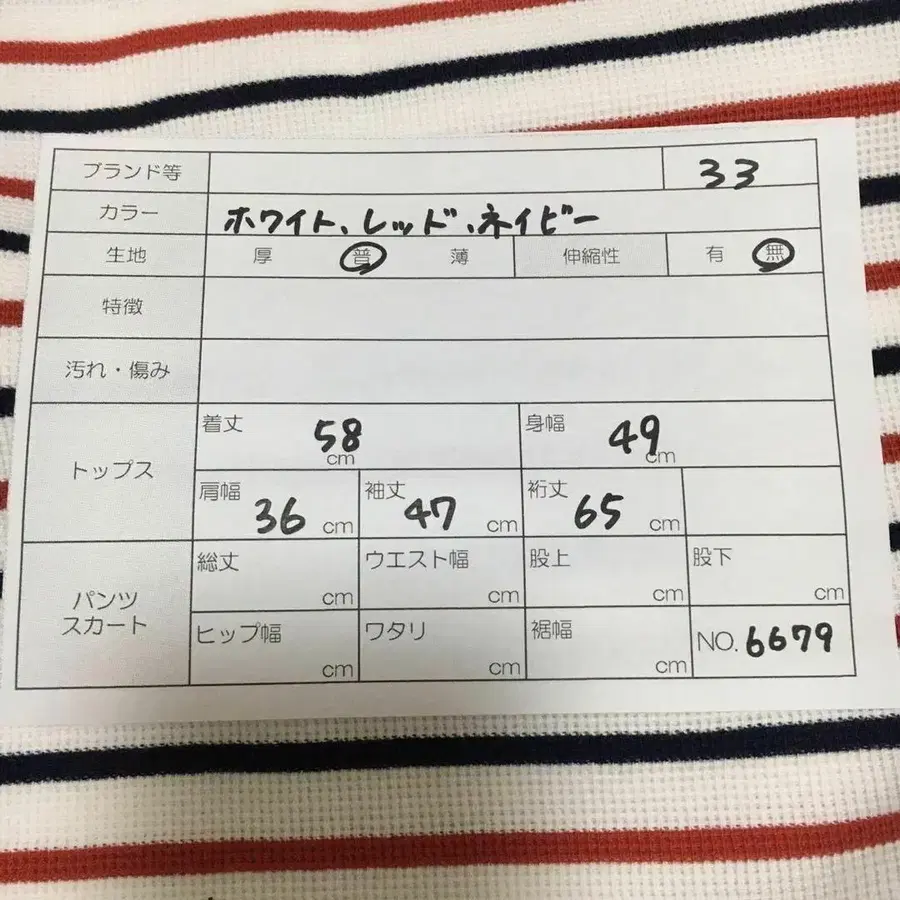 ブランド等 33
カラー ホワイト、レッド、ネイビー
生地 厚 普 薄 伸縮性 有 無
特徴
汚れ・傷み
トップス
着丈 58 cm 身幅 49 cm
肩幅 36 cm 袖丈 47 cm 裄丈 65 cm
パンツ
スカート
総丈 cm ウエスト幅 cm 股上 cm 股下 cm
ヒップ幅 cm ワタリ cm 裾幅 cm NO. 6679